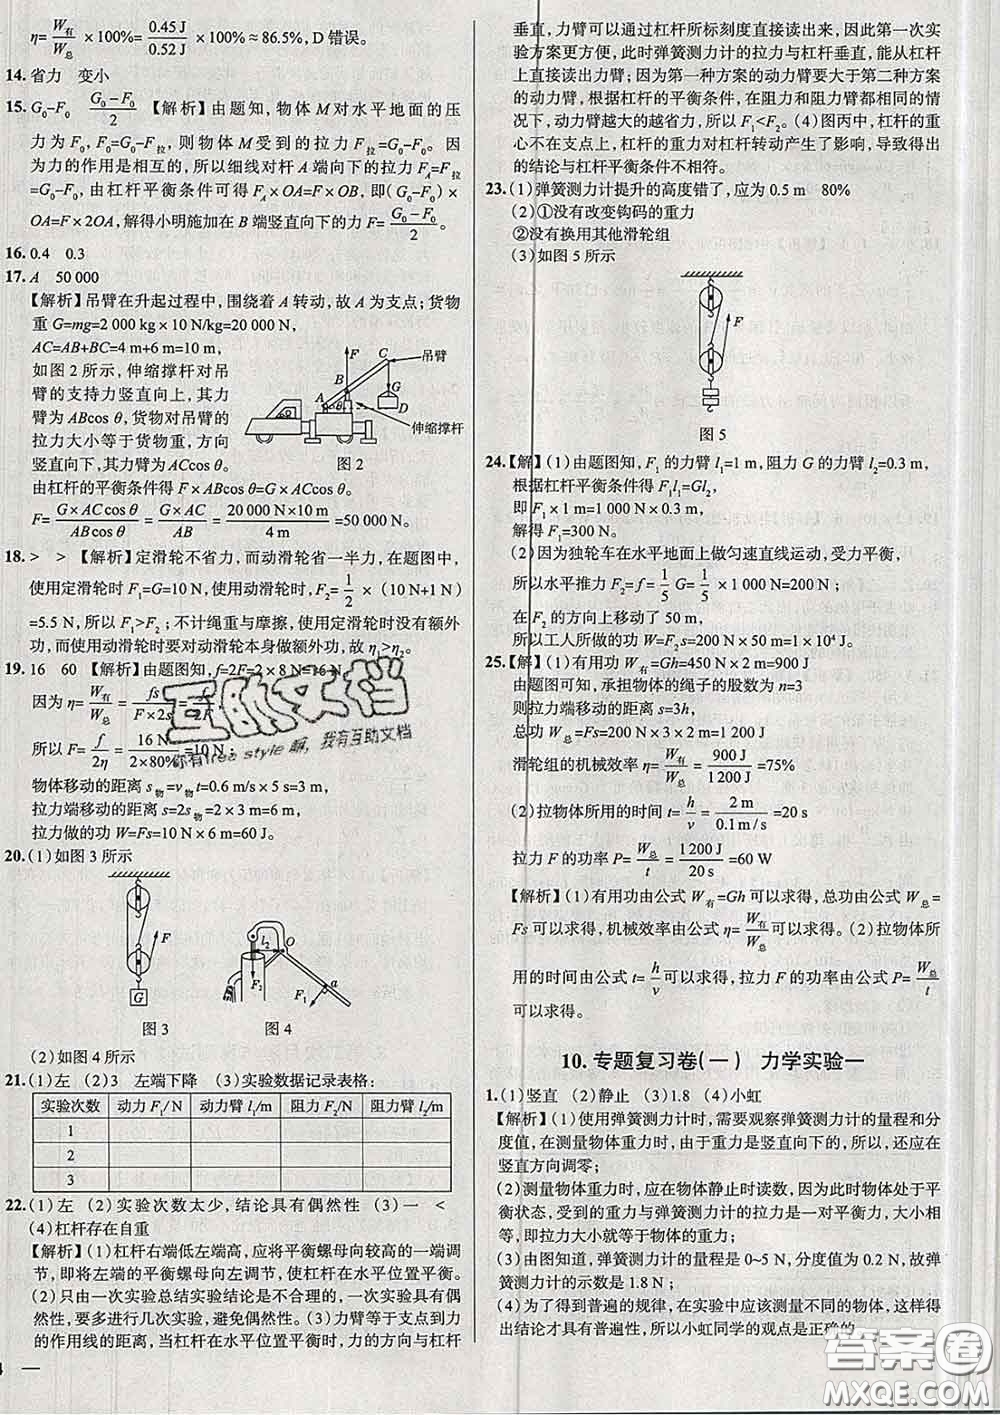 η=W有/W总×100%=0.45 J/0.52 J×100%≈86.5%,D 错误。
14.省力　变小
15.G₀-F₀　(G₀-F₀)/2　【解析】由题知,物体 M 对水平地面的压
力为 F₀,F₀=G₀-F拉,则物体 M 受到的拉力 F拉=G₀-F₀。因
为力的作用是相互的,所以细线对杆 A 端向下的拉力 F_A=F拉
=G₀-F₀,由杠杆平衡条件可得 F_A×OA=F×OB,即(G₀-F₀)×
OA=F×2OA,解得小明施加在 B 端竖直向下的力 F=(G₀-F₀)/2。
16.0.4　0.3
17.A　50 000
【解析】吊臂在升起过程中,围绕着 A 转动,故 A 为支点;货物
重 G=mg=2 000 kg×10 N/kg=20 000 N,
AC=AB+BC=4 m+6 m=10 m,
如图 2 所示,伸缩撑杆对吊
臂的支持力竖直向上,其力
臂为 ABcos θ,货物对吊臂的
拉力大小等于货物重,方向
竖直向下,其力臂为 ACcos θ。
F
C
吊臂
B
G
A
θ
D
伸缩撑杆
图 2
由杠杆的平衡条件得 F×ABcos θ=G×ACcos θ,
F=G×ACcos θ/ABcos θ=G×AC/AB=20 000 N×10 m/4 m=50 000 N。
18.>　>　【解析】定滑轮不省力,而动滑轮省一半力,在题图中,
使用定滑轮时 F₁=G=10 N,使用动滑轮时,F₂=1/2×(10 N+1 N)
=5.5 N,所以 F₁>F₂;不计绳重与摩擦,使用定滑轮时没有额外
功,而使用动滑轮时要对动滑轮本身做额外功,故 η₁>η₂。
19.16　60　【解析】由题图知,f=2F=2×8 N=16 N,
因为 η=W有/W总=fs/F×2s=f/2F,
所以 F=f/2η=16 N/2×80%=10 N;
物体移动的距离 s物=v物t=0.6 m/s×5 s=3 m,
拉力端移动的距离 s=2s物=2×3 m=6 m,
拉力做的功 W=Fs=10 N×6 m=60 J。
互助文档
你有free style 嘛,我有互助文档
20.(1)如图 3 所示
F
G
图 3
l₂
O
F₂
F₁
a
图 4
(2)如图 4 所示
21.(1)左　(2)3　左端下降　(3)实验数据记录表格:
实验次数　动力 F₁/N　动力臂 l₁/m　阻力 F₂/N　阻力臂 l₂/m
1
2
3
22.(1)左　(2)实验次数太少,结论具有偶然性　(3)一　<
(4)杠杆存在自重
【解析】(1)杠杆右端低左端高,应将平衡螺母向较高的一端调
节,即将左端的平衡螺母向左调节,使杠杆在水平位置平衡。
(2)只由一次实验总结实验结论是不合理的,一次实验具有偶然
性,要多进行几次实验,避免偶然性。(3)力臂等于支点到力
的作用线的距离,当杠杆在水平位置平衡时,力的方向与杠杆
垂直,力臂可以通过杠杆所标刻度直接读出来,因此第一次实
验方案更方便,此时弹簧测力计的拉力与杠杆垂直,能从杠杆
上直接读出力臂;因为第一种方案的动力臂要大于第二种方案
的动力臂,根据杠杆的平衡条件,在阻力和阻力臂都相同的情况
下,动力臂越大的越省力,所以 F₁<F₂。(4)图丙中,杠杆的重
心不在支点上,杠杆的重力对杠杆转动产生了影响,导致得出
的结论与杠杆平衡条件不相符。
23.(1)弹簧测力计提升的高度错了,应为 0.5 m　80%
(2)①没有改变钩码的重力
②没有换用其他滑轮组
(3)如图 5 所示
F
图 5
24.【解】(1)由题图知,F₁的力臂 l₁=1 m,阻力 G 的力臂 l₂=0.3 m,
根据杠杆平衡条件得 F₁l₁=Gl₂,
即 F₁×1 m=1 000 N×0.3 m,
解得 F₁=300 N。
(2)因为独轮车在水平地面上做匀速直线运动,受力平衡,
所以水平推力 F₂=f=1/5 G=1/5×1 000 N=200 N;
在 F₂ 的方向上移动了 50 m,
所以工人所做的功 W=F₂s=200 N×50 m=1×10⁴ J。
25.【解】(1)有用功 W有=Gh=450 N×2 m=900 J
由题图可知,承担物体的绳子的股数为 n=3
则拉力端移动的距离 s=3h,
总功 W总=Fs=200 N×3×2 m=1 200 J
滑轮组的机械效率 η=W有/W总=900 J/1 200 J=75%
(2)拉物体所用的时间 t=h/v=2 m/0.1 m/s=20 s
拉力 F 的功率 P=W总/t=1 200 J/20 s=60 W
【解析】(1)有用功由公式 W有=Gh 可以求得,总功由公式 W总=
Fs 可以求得,机械效率由公式 η=W有/W总可以求得。(2)拉物体所
用的时间由公式 t=h/v可以求得,拉力 F 的功率由公式 P=W总/t
可以求得。
10. 专题复习卷(一)　力学实验一
1.(1)竖直　(2)静止　(3)1.8　(4)小虹
【解析】(1)使用弹簧测力计时,需要观察弹簧测力计的量程和分
度值,在测量物体重力时,由于重力是竖直向下的,所以,还应在
竖直方向调零;
(2)测量物体重力时,应在物体静止时读数,因为此时物体处于平
衡状态,受到的重力与弹簧测力计的拉力是一对平衡力,大小相
等,即拉力大小就等于物体的重力;
(3)由图知道,弹簧测力计的量程是 0~5 N,分度值为 0.2 N,故弹
簧测力计的示数是 1.8 N;
(4)为了得到普遍的规律,在实验中应该测量不同的物体,这样得
出结论才具有普遍性,所以小虹同学的观点是正确的。
答案卷
MXQE.COM
4